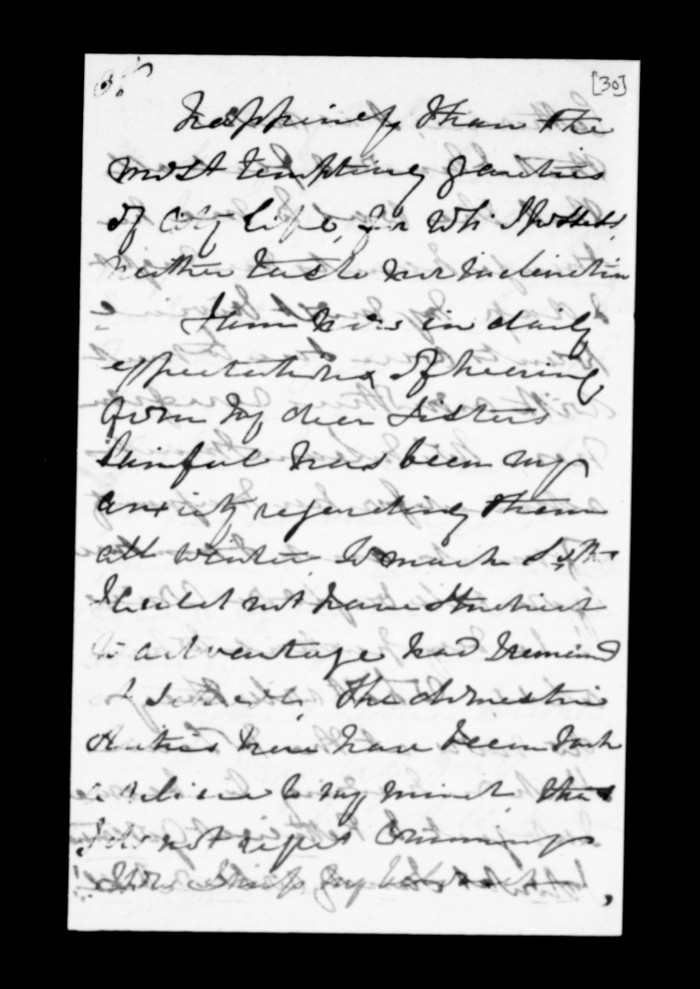 [30]
happiness than the
most tempting gaieties
of City life, for wh: I possess
neither taste nor inclination
I am now in daily
expectations of hearing
from my dear Sisters
Painful has been my
anxiety regarding them
all winter so much so
I could not have studied
to advantage had I remained
at The domestic
duties here have been such
a relief to my mind that
I do not regret coming